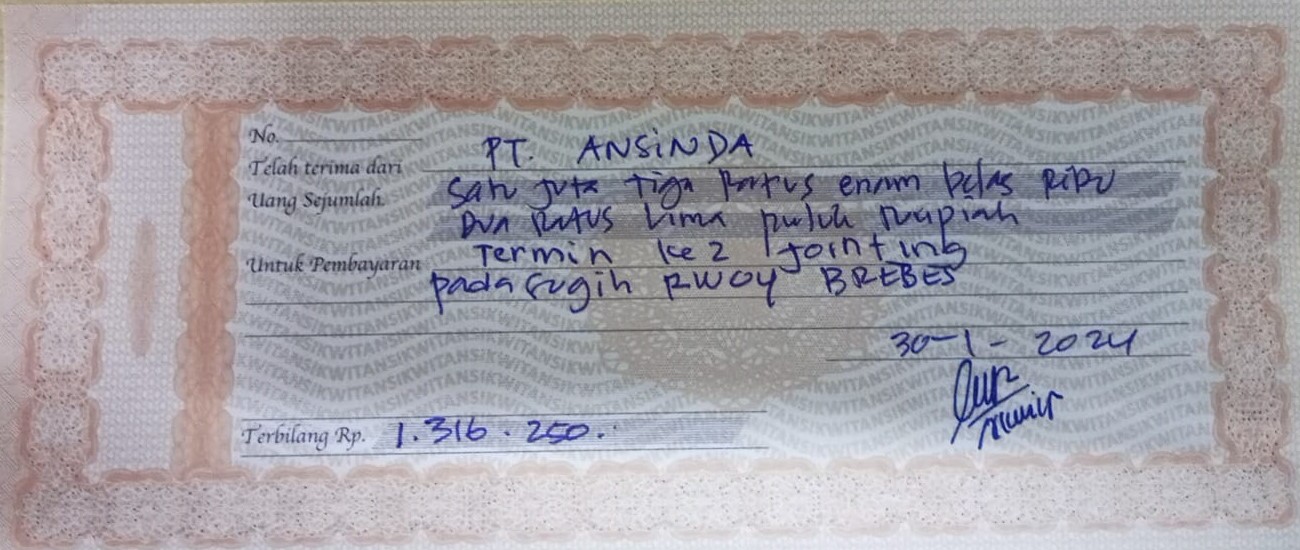 No.
Telah terima dari PT. ANSINDA
Uang Sejumlah Satu juta tiga Ratus enam belas RiBU
DUA RATUS Lima puluh rupiah
Untuk Pembayaran Termin ke 2 Jointing
padasugih RW04 BREBES
30-1-2024
munir
Terbilang Rp. 1.316.250.